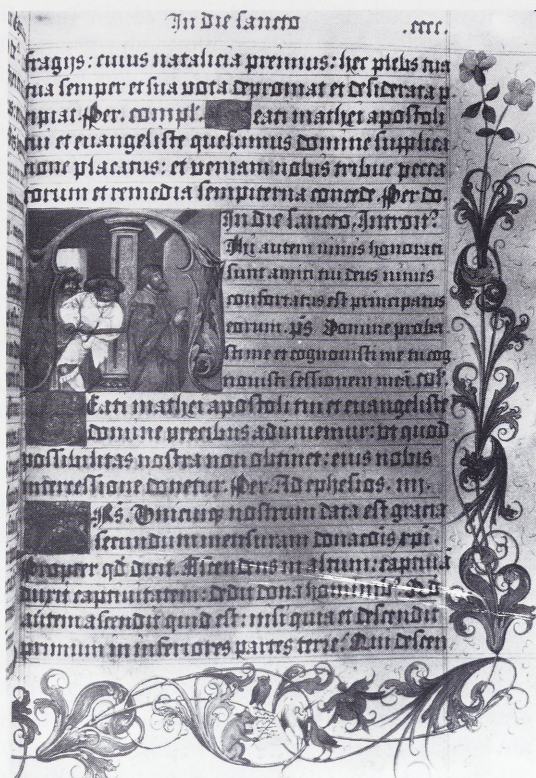 In die sancto .cccc.
fragijs: cuius natalicia premius: hec plebs tua
tua semper et sua vota depromat et desiderata p
cipiat. Per. compl. eati mathei apostoli
tui et euangeliste quesumus domine supplica
cione placatus: et veniam nobis tribue pecca
torum et remedia sempiterna concede. Per do.
In die sancto. Introit?
Mihi autem nimis honorati
sunt amici tui deus nimis
confortatus est principatus
eorum. ps Domine proba
sti me et cognouisti me tu cog
nouisti sessionem meā.
Eati mathei apostoli tui et euangeliste
domine precibus adiuuemur: vt quod
possibilitas nostra non obtinet: eius nobis
intercessione donetur. Per. Ad ephesios. iiij.
Rs. Vnicuiq nostrum data est gracia
secundum mensuram donacōis xpi.
Propter qd dicit. Ascendens in altum: captiuā
duxit captiuitatem: dedit dona hominib?
autem ascendit quid est: nisi quia et descendit
primum in inferiores partes terre? Qui descen